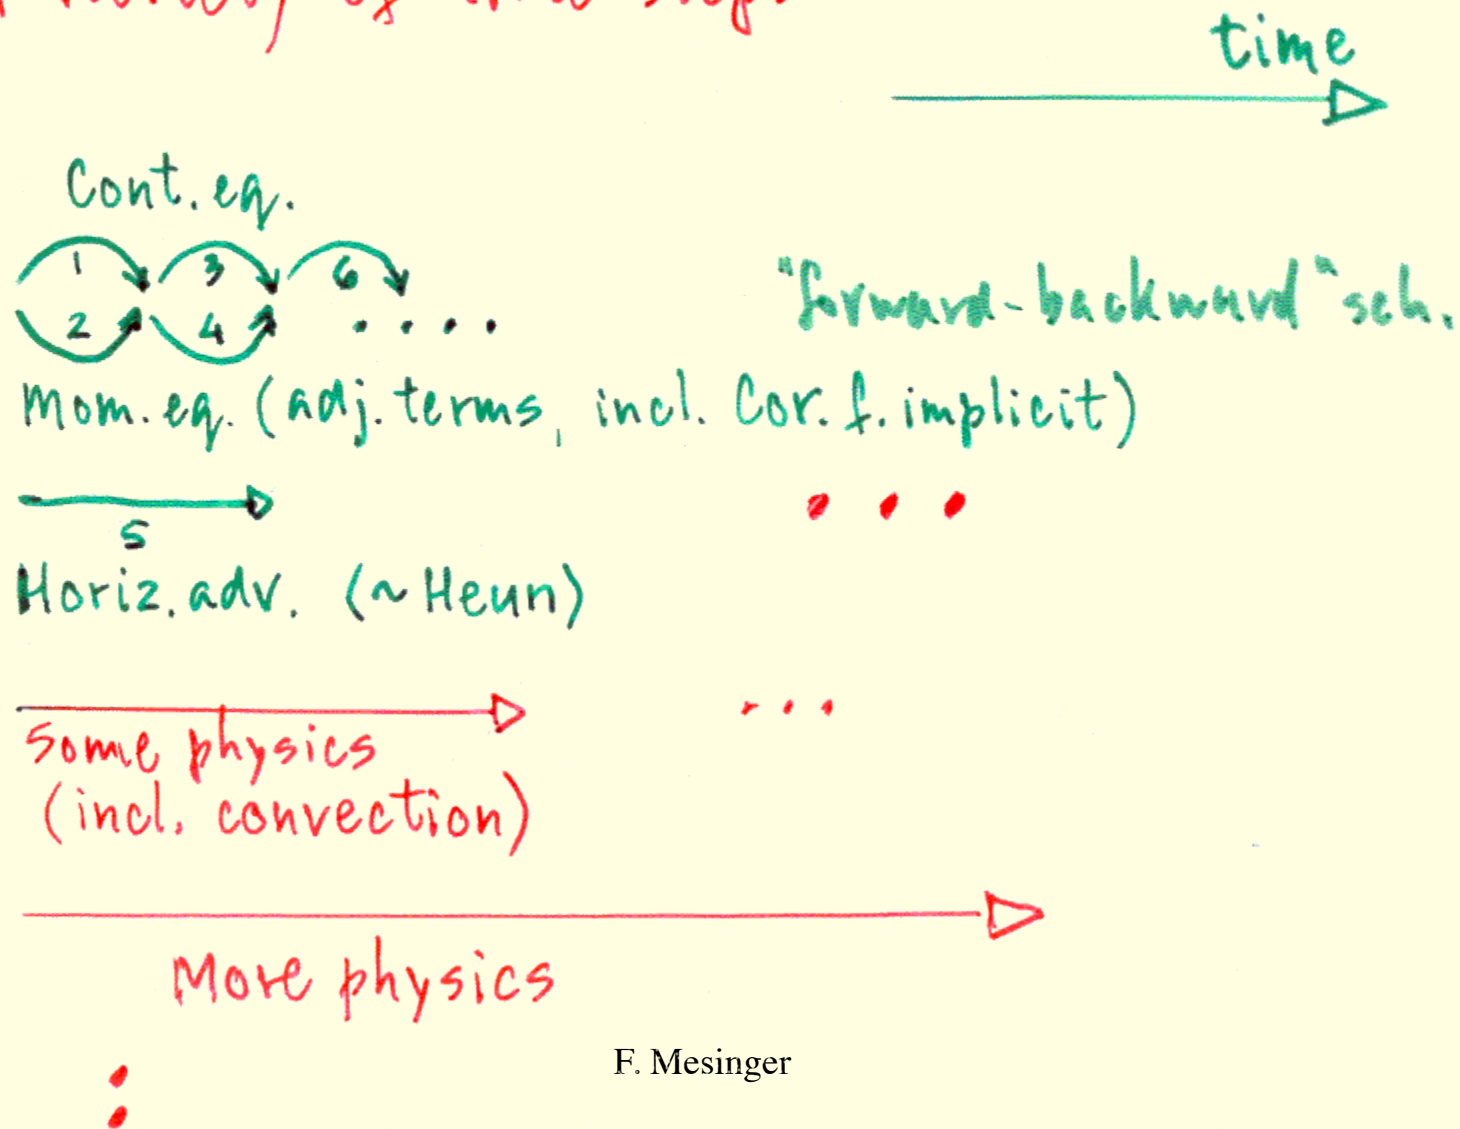 time
Cont. eq.
1 3 6
2 4 . . . .
"forward-backward" sch.
Mom. eq. (adj. terms, incl. Cor. f. implicit)
5
Horiz. adv. (~ Heun)
Some physics
(incl. convection)
More physics
F. Mesinger